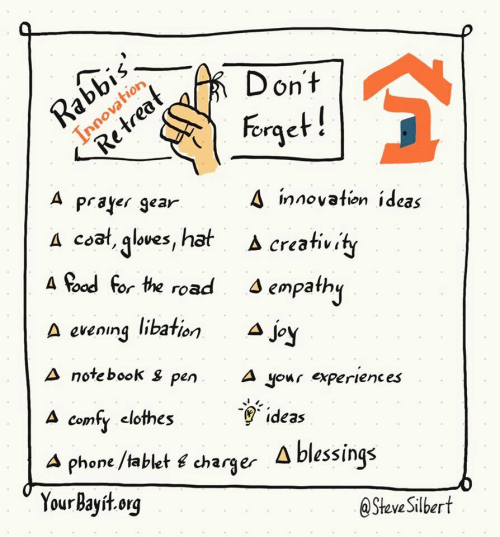 Rabbis'
Innovation
Retreat
Don't
Forget!
prayer gear
coat, gloves, hat
food for the road
evening libation
notebook & pen
comfy clothes
phone/tablet & charger
innovation ideas
creativity
empathy
joy
your experiences
ideas
blessings
YourBayit.org
@SteveSilbert